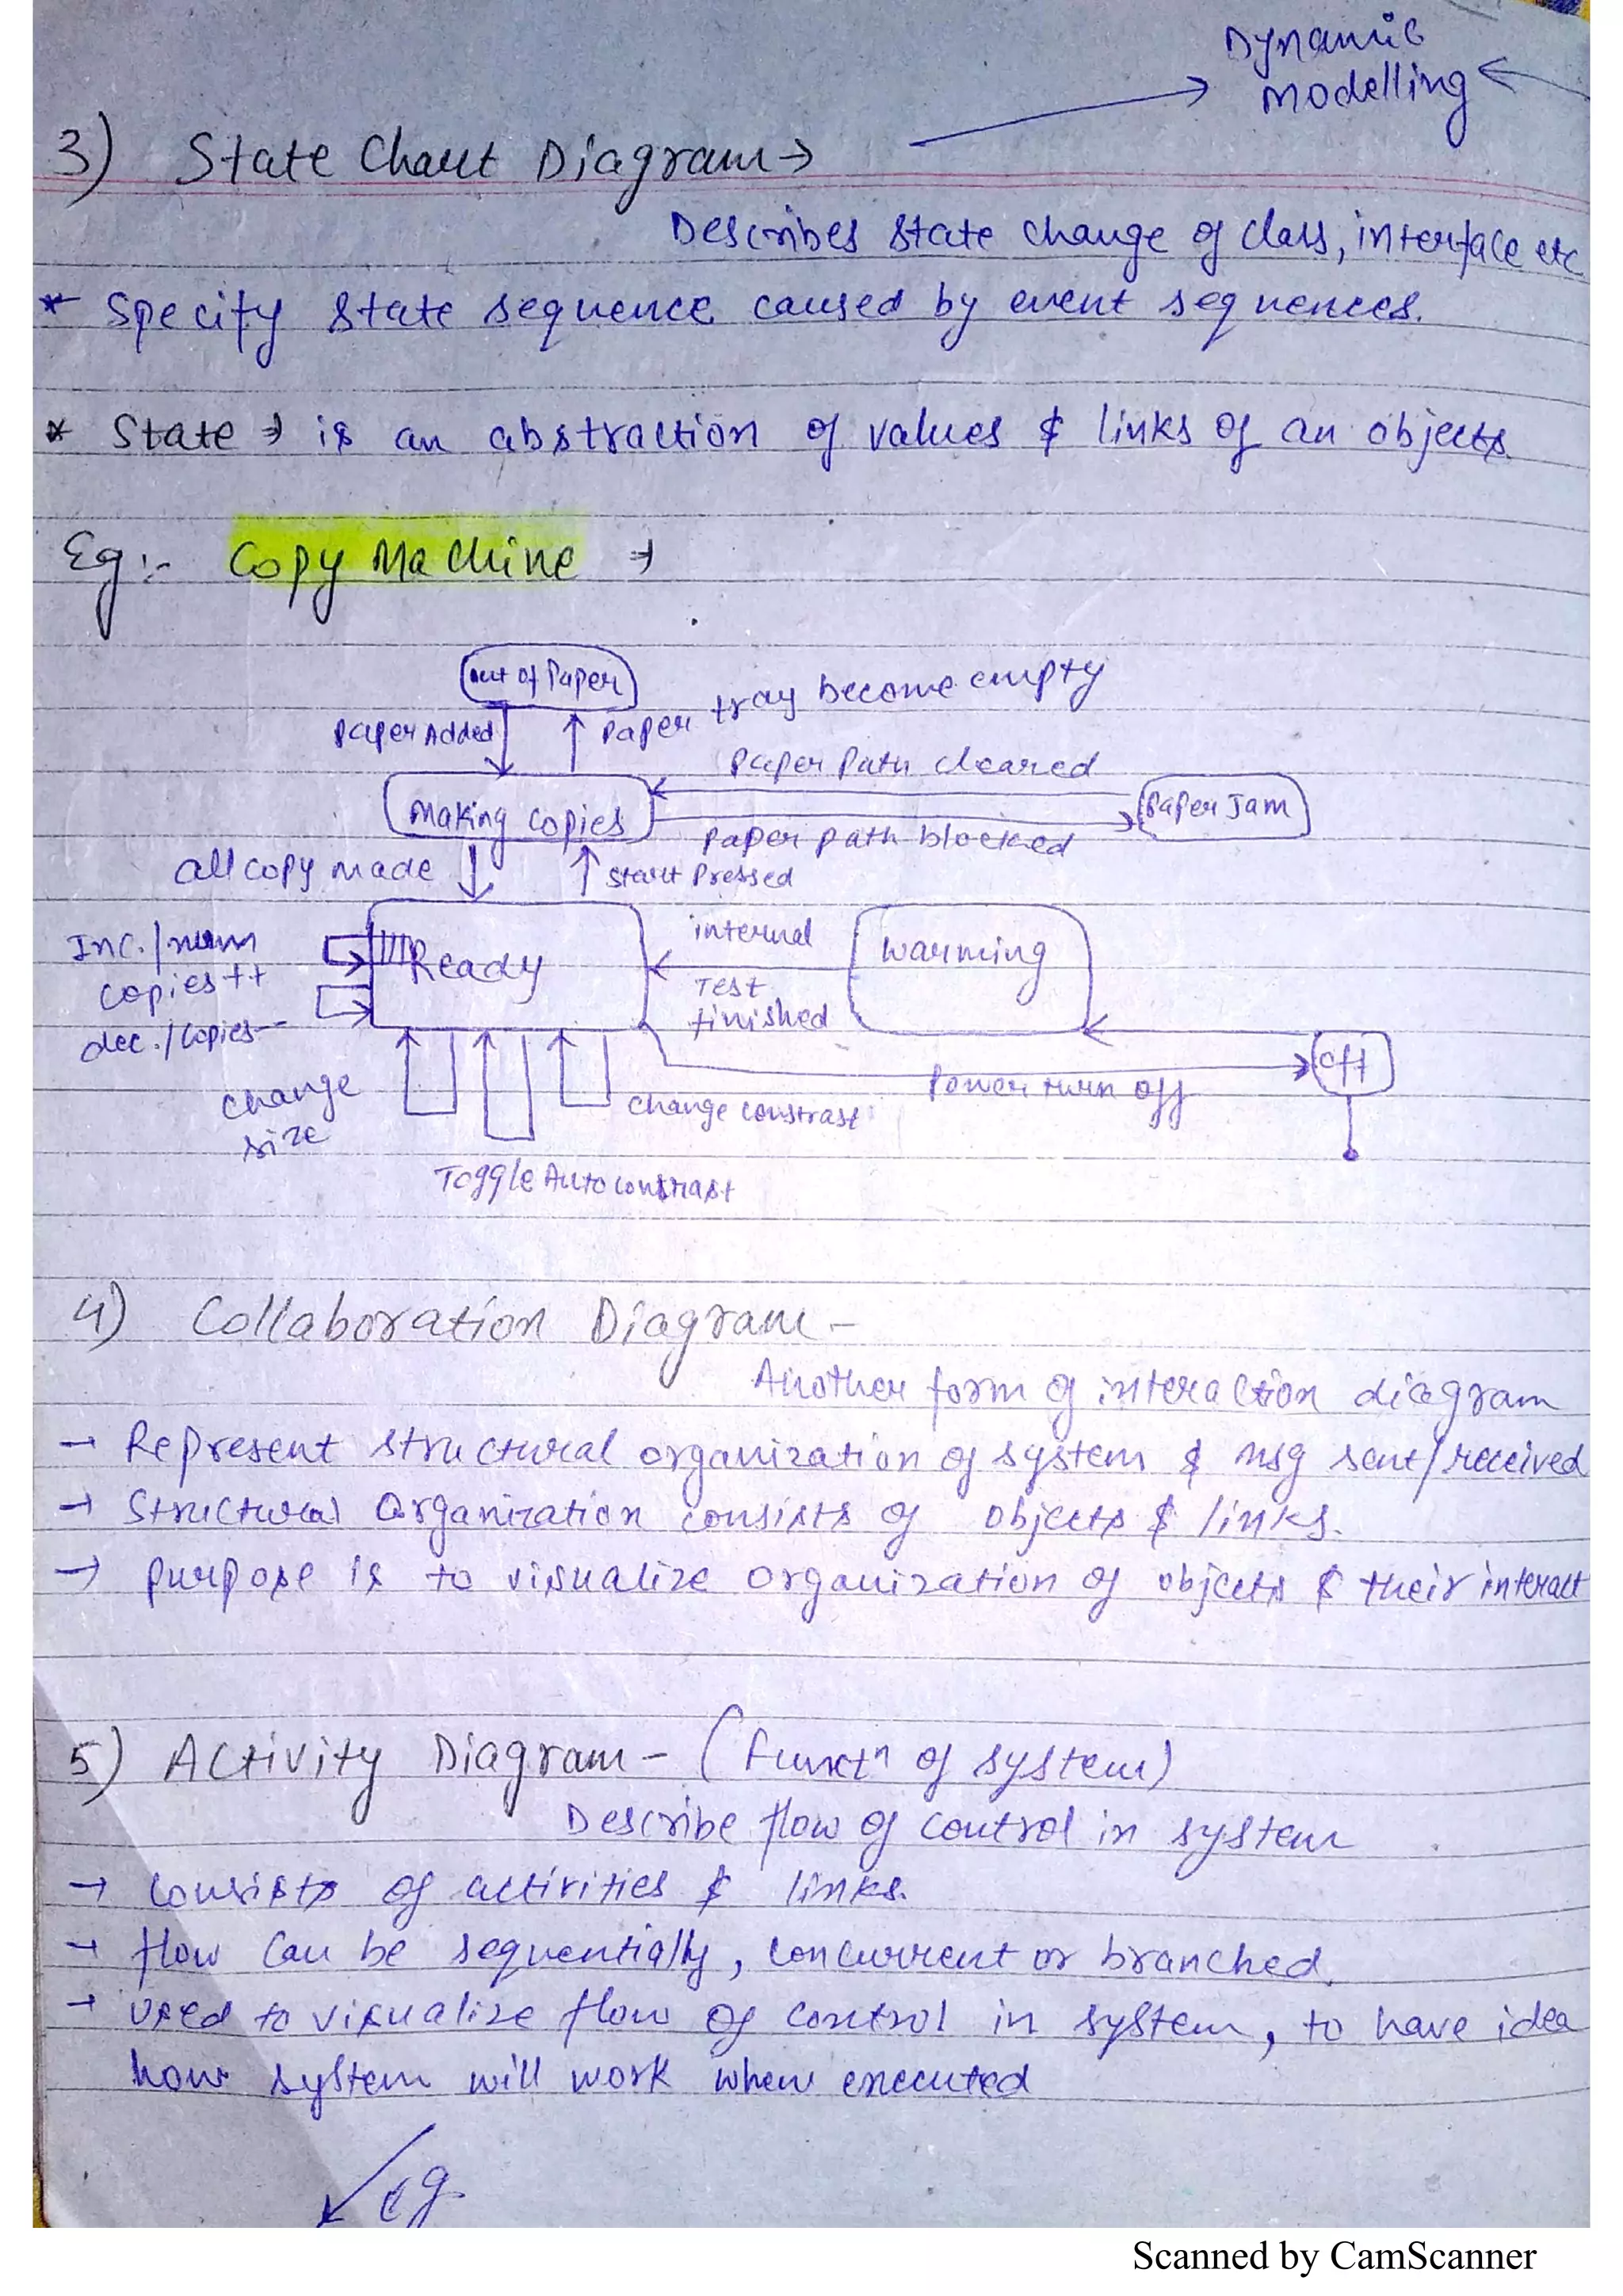 Dynamic
Modelling
3) State Chart Diagram →
Describes state change of class, interface etc
* Specify state sequence caused by event sequences.
* State → is an abstraction of values & links of an objects.
Eg:- Copy Machine →
out of Paper
Paper Added
Paper tray become empty
Paper Path cleared
Making Copies
Paper Jam
Paper path blocked
all copy made
Start Pressed
Inc./num
copies++
Ready
internal
Test
finished
Warming
dec./copies--
off
Power turn off
change
size
change constrast
Toggle Auto contrast
4) Collaboration Diagram -
Another form of interaction diagram
→ Represent structural organization of system & msg sent/received
→ Structural Organization consists of objects & links.
→ purpose is to visualize organization of objects & their interact
5) Activity Diagram - (Functn of system)
Describe flow of control in system
→ consists of activities & links.
→ flow can be sequentially, concurrent or branched.
→ used to visualize flow of control in system, to have idea
how system will work when executed
eg.
Scanned by CamScanner